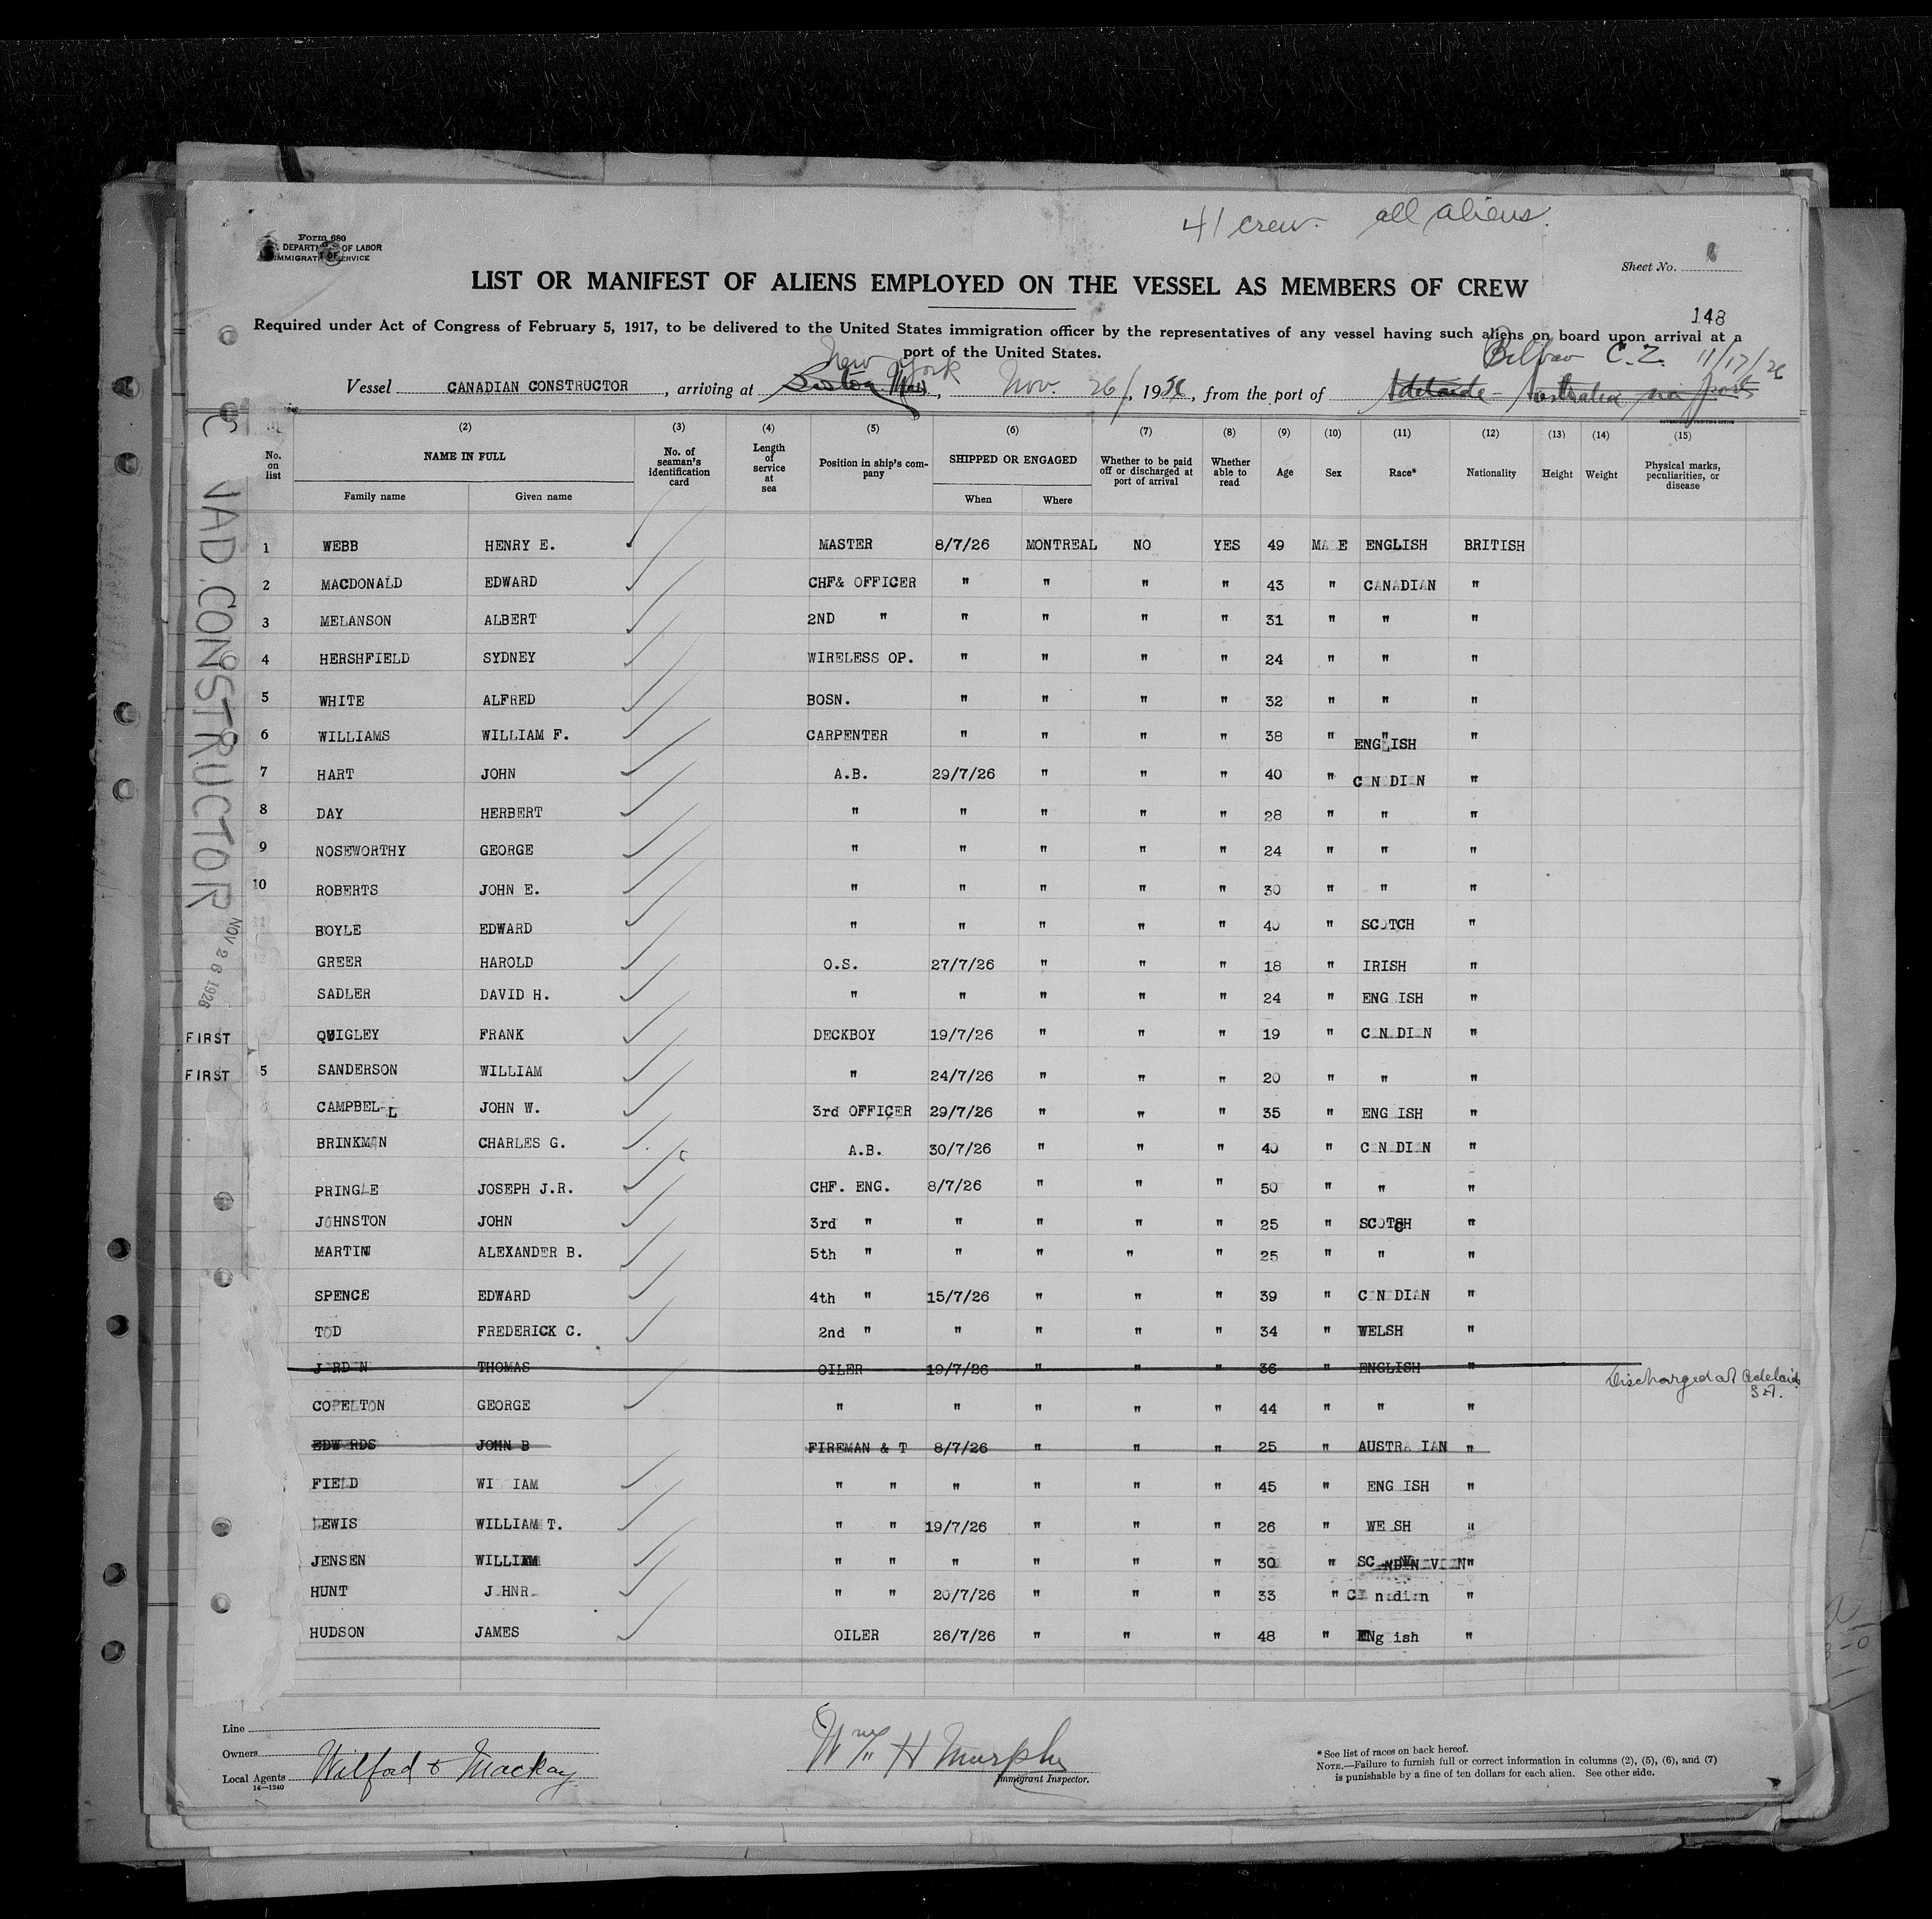 41 crew. all aliens.
Form 680
DEPARTMENT OF LABOR
IMMIGRATION SERVICE
Sheet No.
LIST OR MANIFEST OF ALIENS EMPLOYED ON THE VESSEL AS MEMBERS OF CREW
148
Required under Act of Congress of February 5, 1917, to be delivered to the United States immigration officer by the representatives of any vessel having such aliens on board upon arrival at a
port of the United States.
New York
Balboa C.Z. 11/17/26
Vessel CANADIAN CONSTRUCTOR, arriving at Boston Mass, Nov. 26/, 19 26, from the port of Adelaide - Australia via ports
(2) (3) (4) (5) (6) (7) (8) (9) (10) (11) (12) (13) (14) (15)
No. on list NAME IN FULL No. of seaman's identification card Length of service at sea Position in ship's company SHIPPED OR ENGAGED Whether to be paid off or discharged at port of arrival Whether able to read Age Sex Race* Nationality Height Weight Physical marks, peculiarities, or disease
Family name Given name When Where
CANAD. CONSTRUCTOR
NOV 26 1926
1 WEBB HENRY E. MASTER 8/7/26 MONTREAL NO YES 49 MA E ENGLISH BRITISH
2 MACDONALD EDWARD CHF& OFFICER " " " " 43 " CANADIAN "
3 MELANSON ALBERT 2ND " " " " " 31 " " "
4 HERSHFIELD SYDNEY WIRELESS OP. " " " " 24 " " "
5 WHITE ALFRED BOSN. " " " " 32 " " "
6 WILLIAMS WILLIAM F. CARPENTER " " " " 38 " " ENGLISH "
7 HART JOHN A.B. 29/7/26 " " " 40 " C N DI N "
8 DAY HERBERT " " " " " 28 " " "
9 NOSEWORTHY GEORGE " " " " " 24 " " "
10 ROBERTS JOHN E. " " " " " 30 " " "
11 BOYLE EDWARD " " " " " 40 " SCOTCH "
12 GREER HAROLD O.S. 27/7/26 " " " 18 " IRISH "
3 SADLER DAVID H. " " " " " 24 " ENG ISH "
FIRST 14 QUIGLEY FRANK DECKBOY 19/7/26 " " " 19 " C N DI N "
FIRST 5 SANDERSON WILLIAM " 24/7/26 " " " 20 " " "
CAMPBELL JOHN W. 3rd OFFICER 29/7/26 " " " 35 " ENG ISH "
BRINKMAN CHARLES G. A.B. 30/7/26 " " " 40 " C N DI N "
PRINGLE JOSEPH J.R. CHF. ENG. 8/7/26 " " " 50 " " "
JOHNSTON JOHN 3rd " " " " " 25 " SCOTCH "
MARTIN ALEXANDER B. 5th " " " " " 25 " " "
SPENCE EDWARD 4th " 15/7/26 " " " 39 " C N DIAN "
TOD FREDERICK C. 2nd " " " " " 34 " WELSH "
J RD N THOMAS OILER 19/7/26 " " " 36 " ENGLISH " Discharged at Adelaide S.A.
COPELTON GEORGE " " " " " 44 " " "
EDWARDS JOHN B FIREMAN & T 8/7/26 " " " 25 " AUSTRA IAN "
FIELD WI IAM " " " " " " 45 " ENG ISH "
LEWIS WILLIAM T. " " 19/7/26 " " " 26 " WE SH "
JENSEN WILLIAM " " " " " " 30 " SC NDIN VI N "
HUNT J HNR " " 20/7/26 " " " 33 " C n di n "
HUDSON JAMES OILER 26/7/26 " " " 48 " ENg ish "
Line
Owners
Local Agents Wilford & Mackay
14—1240
Wm H Murphy
Immigrant Inspector.
* See list of races on back hereof.
NOTE.—Failure to furnish full or correct information in columns (2), (5), (6), and (7)
is punishable by a fine of ten dollars for each alien. See other side.